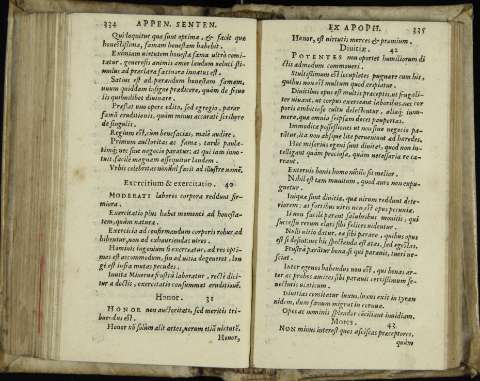 334 APPEN. SENTEN.
Qui loquitur quæ sunt optima, & facit quæ
honestissima, famam honestam habebit.
Eximiam virtutem honesta fama ultrò comi-
tatur. generosis animis amor laudum veluti sti-
mulus ad præclara facinora innatus est.
Satius est ad parandum honestam famam,
unum quiddam insigne prædicere, quàm de
lis quibuslibet divinare.
Præstat uno opere edito, sed egregio, parar
famã eruditionis, quàm minus accuratè scribere
de singulis.
Regium est, cùm benefacias, malè audire.
Primum auctoritas ac fama, tardè paula-
timq; nec sine negotio paratur: at qui iam inno-
tuit, facilè magnam assequitur laudem.
Vrbis celebritas nihil facit ad illustre nomē.
Exercitium & exercitatio. 40
MODERATI labores corpora reddunt fir-
miora.
Exercitatio plus habet momenti ad honesta-
tem, quàm natura.
Exercitia ad confirmandum corporis robur, ad
hibentur, non ad exhauriendas vires.
Hominis ingenium si exerceatur, ad res opti-
mas est accommodum, sin ad vitia degeneret, lon
gè est infra mutas pecudes.
Invita Minerva frustrà laboratur, rectè dici-
tur à doctis, exercitatio consummat eruditionē.
Honor. 31
HONOR non auctoritati, sed meritis tri-
buendus est.
Honor nõ solùm alit artes, verum etiã virtutē.
Honor,
EX APOPH. 335
Honor, est virtutis merces & præmium.
Divitiæ. 42
POTENTES mu oportet humiliorum di
ctis admodum commoveri.
Stultissimum est locupletes pugnare cum his,
quibus non est multum quod eripiatur.
Divitibus opus est multis præceptis, ut frugali-
ter vivant, ut corpus exerceant laboribus, nec cor
poris ambitioso cultu delectentur, aliaq; innu-
mera, quæ omnia seipsam docet paupertas.
Immodicæ possessiones ut non sine negotio pa-
rantur, ita non absque lite perveniunt ad hæredes.
Hoc miseriis egeni sunt divites, quod non in-
telligant quàm preciosa, quàm necessaria re ca-
reant.
Externis bonis homo nihilo fit melior.
Nihil est tam munitum, quod auro non expu-
gnetur.
Iniquæ sunt divitiæ, quæ virum reddunt dete-
riorem: at fortibus viris non est opus pecunia.
Ii non facilè parent salubribus monitis, qui
successu rerum clari sibi felices videntur.
Noli nitio datur, ea sibi parare, quibus opus
est si desint: nec his spectenda est ætas, sed egestas.
Frustrà paritur bona si qui parantur, iniri ne-
sciat.
Inter egenos habendus non est, qui bonas ar-
tes ac probos amicos sibi paravit certissimum se-
nectutis viaticum.
Divitias comitatur luxus, luxus exit in tyran
nidem, dum famem migrat in cruvum.
Opes ac nominis splendor conciliant invidiam.
Mores. 43
NON minus interest quos asciscas præceptores,
quàm